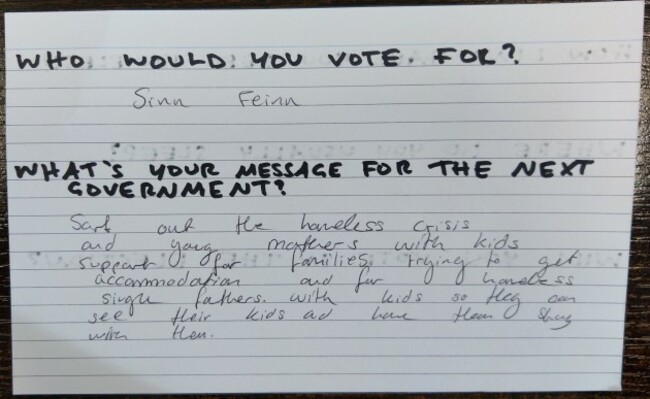 WHO WOULD YOU VOTE FOR?
Sinn Feinn
WHAT'S YOUR MESSAGE FOR THE NEXT
GOVERNMENT?
Sort out the homeless crisis
and young mothers with kids
support for families trying to get
accommodation and for homeless
single fathers with kids so they can
see their kids ad have them stay
with them.